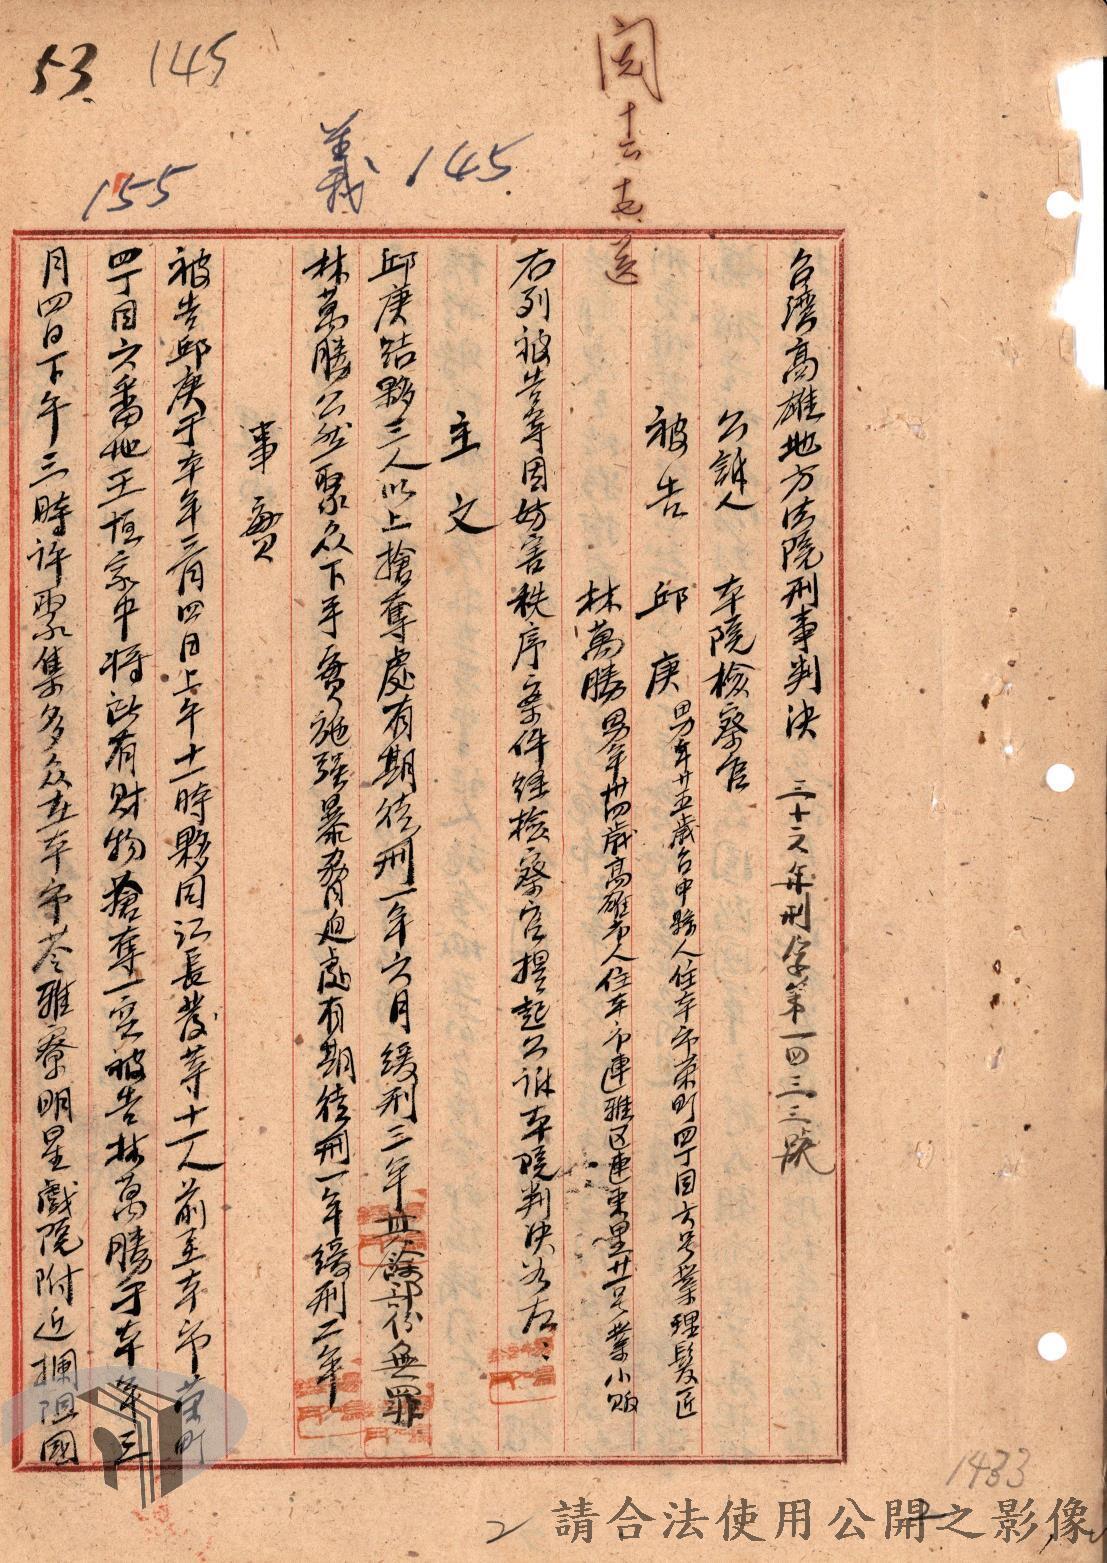 53
145
閱
十六
七
送
義 145
155
台灣高雄地方法院刑事判決 三十六年刑字第一四三三號
公訴人 本院檢察官
被告 邱庚 男年廿五歲台中縣人住本市榮町四丁目六号業理髮匠
林萬勝 男年卅四歲高雄市人住本市連雅区連東里廿一号業小販
右列被告等因妨害秩序案件経檢察官提起公訴本院判決如左：
主文
邱庚結夥三人以上搶奪處有期徒刑一年六月緩刑三年其餘部份無罪
林萬勝公然聚众下手實施强暴脅迫處有期徒刑一年緩刑二年
事實
被告邱庚于本年三月四日上午十一時夥同江長發等十一人前至本市榮町
四丁目六番地王恒家中將所有財物搶奪一空被告林萬勝于本年三
月四日下午三時許聚集多众在本市苓雅寮明星戲院附近攔阻國
1433
請合法使用公開之影像